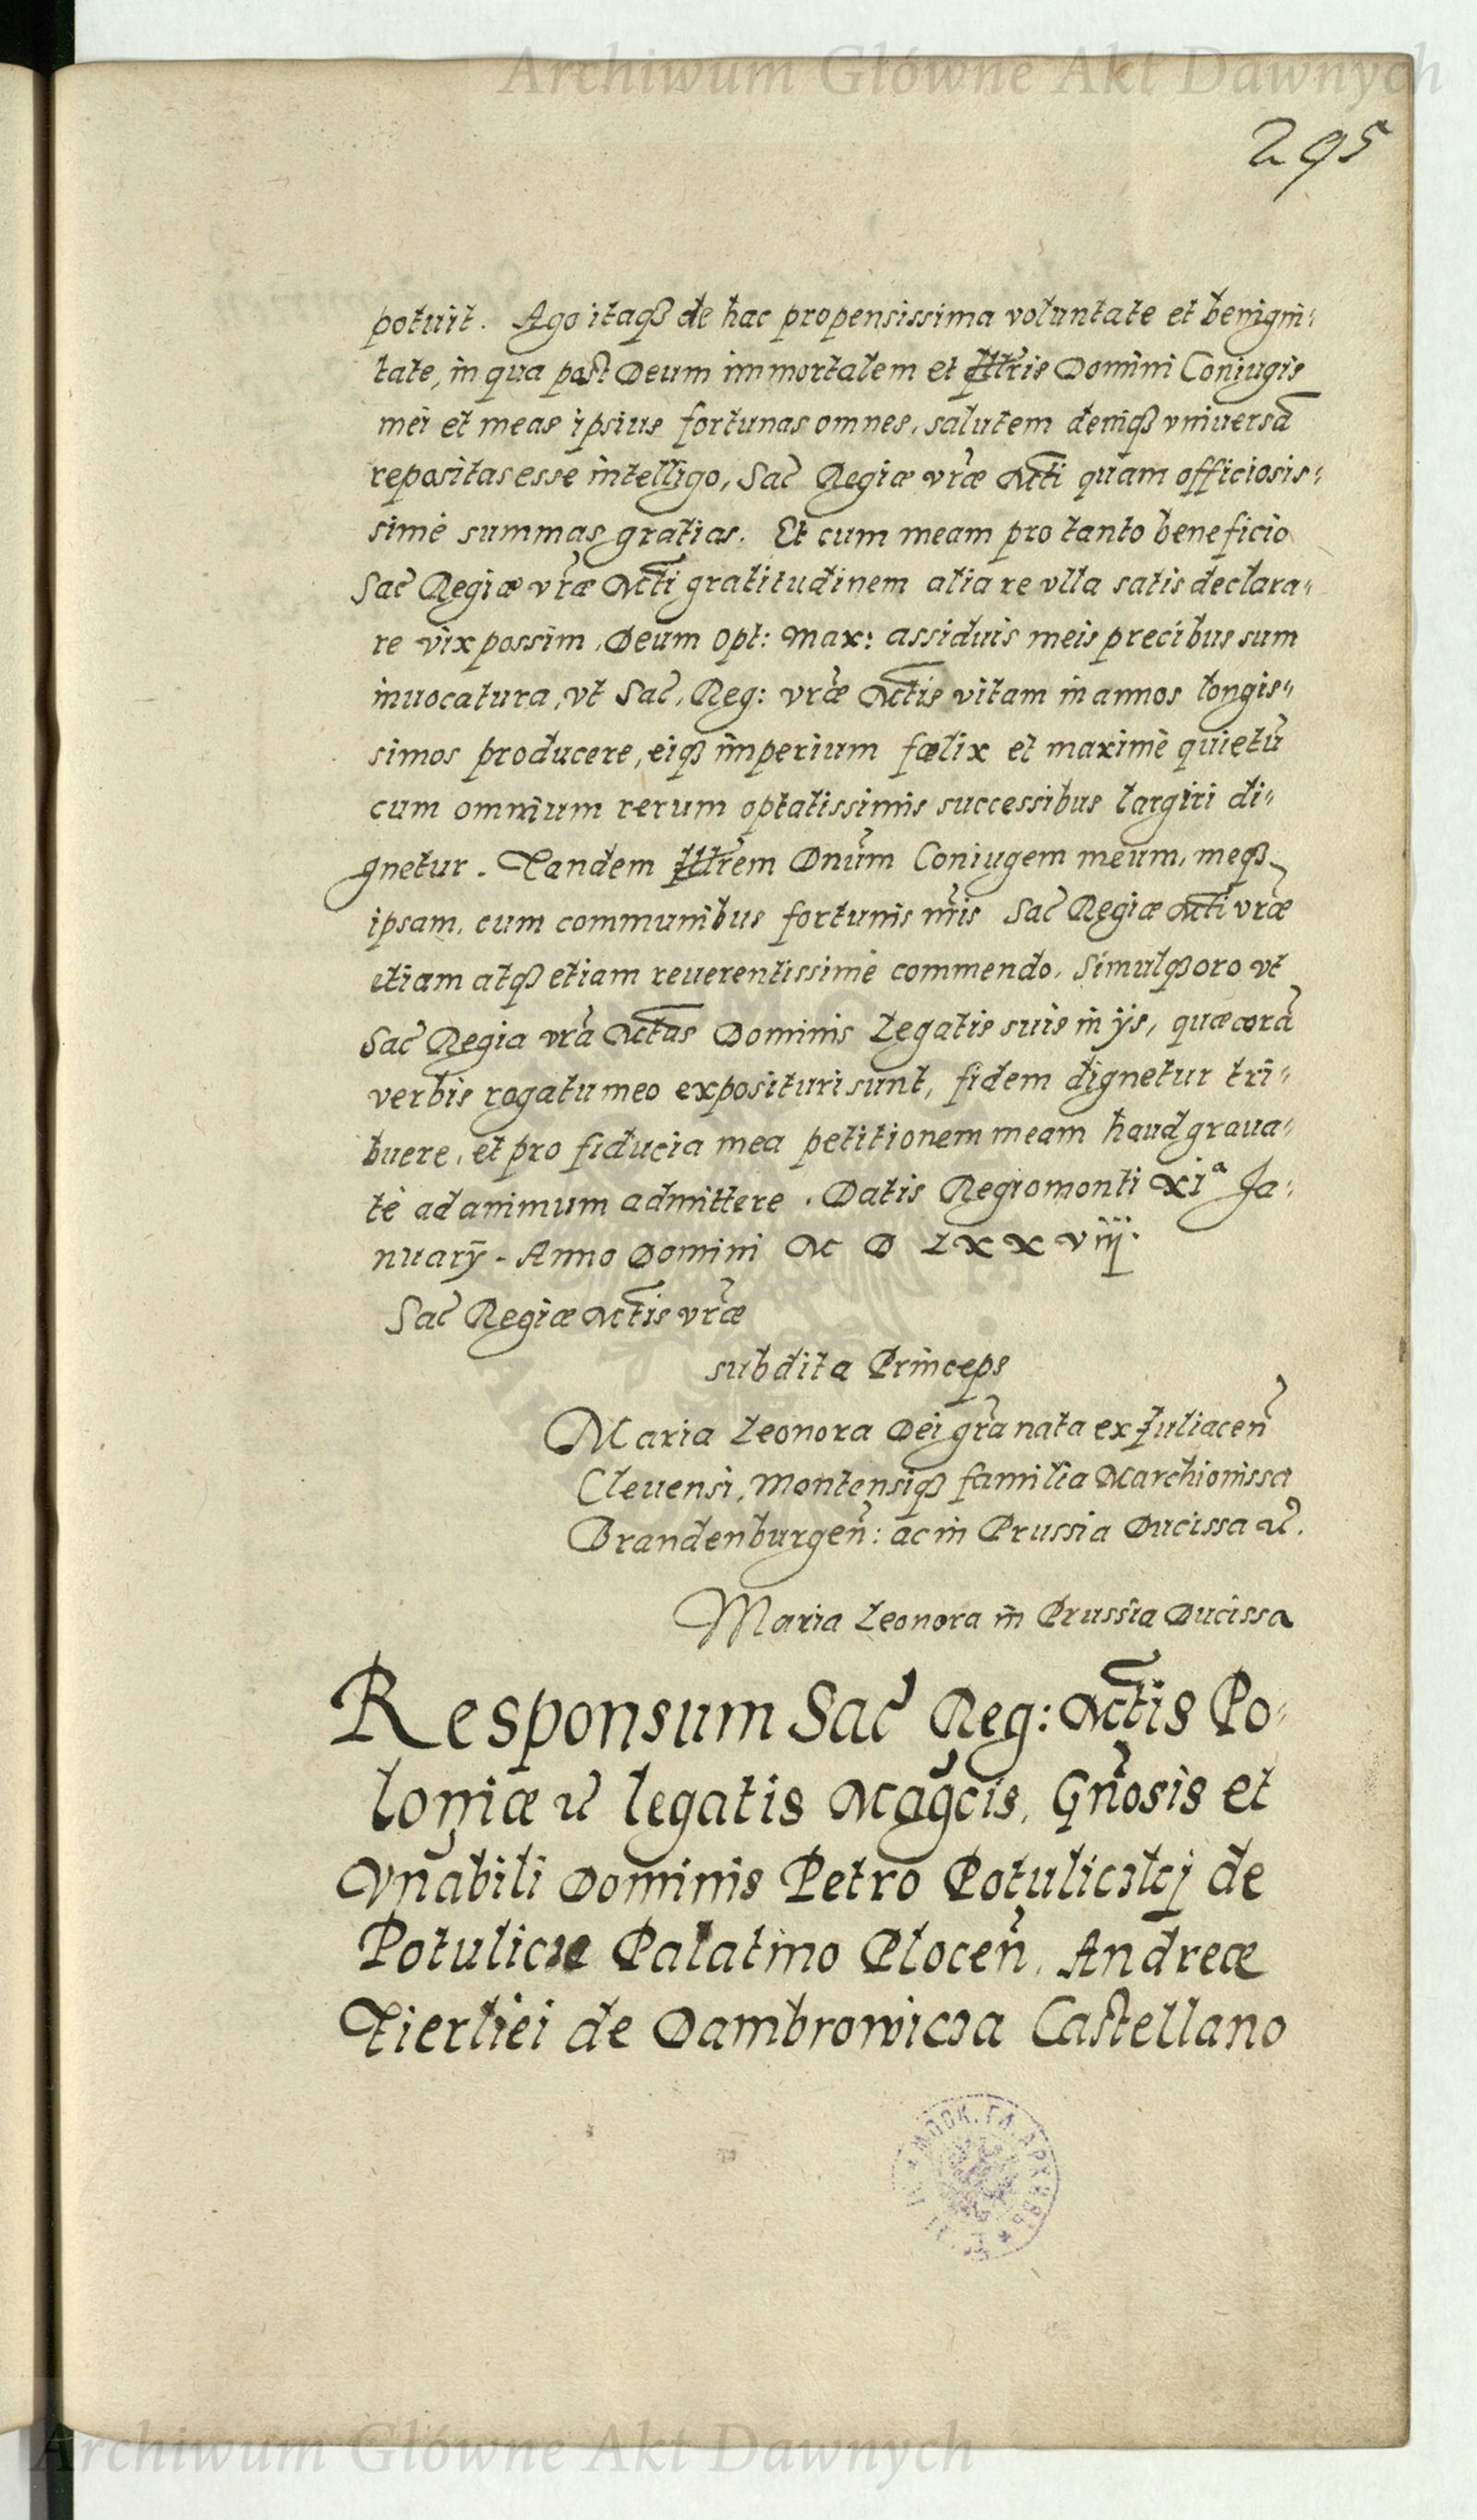 Archiwum Główne Akt Dawnych
295
potuit. Ago itaqꝫ de hac propensissima voluntate et benigni=
tate, in qua post Deum immortalem et Illr̃is Domini Coniugis
mei et meas ipsius fortunas omnes, salutem deniqꝫ vniuersã
repositas esse intelligo, Sac̃ Regiæ vr̃æ Mt̃i quam officiosis=
simè summas gratias. Et cum meam pro tanto beneficio
Sac̃ Regiæ vr̃æ Mt̃i gratitudinem alia re vlla satis declara=
re vix possim, Deum Opt: Max: assiduis meis precibus sum
inuocatura, vt Sac̃, Reg: vr̃æ Mt̃is vitam in annos longis=
simos producere, eiqꝫ imperium fœlix et maximè quietũ
cum omnium rerum optatissimis successibus largiri di=
gnetur. Tandem Illr̃em Dnũm Coniugem meum, meqꝫ
ipsam, cum communibus fortunis nr̃is Sac̃ Regiæ Mt̃i vr̃æ
etiam atqꝫ etiam reuerentissimè commendo, Simulqꝫ oro vt
Sac̃ Regia vr̃a Mt̃as Dominis Legatis suis in ijs, quæ corã
verbis rogatu meo exposituri sunt, fidem dignetur tri=
buere, et pro fiducia mea petitionem meam haud graua=
tè ad animum admittere. Datis Regiomonti XIª Ja=
nuarij - Anno Domini M D LXXVIII.
Sac̃ Regiæ Mt̃is vr̃æ
subdita Princeps
Maria Leonora Dei gr̃a nata ex Juliaceñ
Cleuensi, Montensiqꝫ familia Marchionissa
Brandenburgeñ: ac in Prussia Ducissa ꝛc̃.
Maria Leonora in Prussia Ducissa
Responsum Sac̃ Reg: Mt̃is Po=
loniæ ꝛc̃ legatis Mag̃cis, Gñosis et
Vñabili Dominis Petro Potuliczkj de
Potulicze Palatino Ploceñ, Andreæ
Tierliei de Dambrowicza Castellano
Archiwum Główne Akt Dawnych